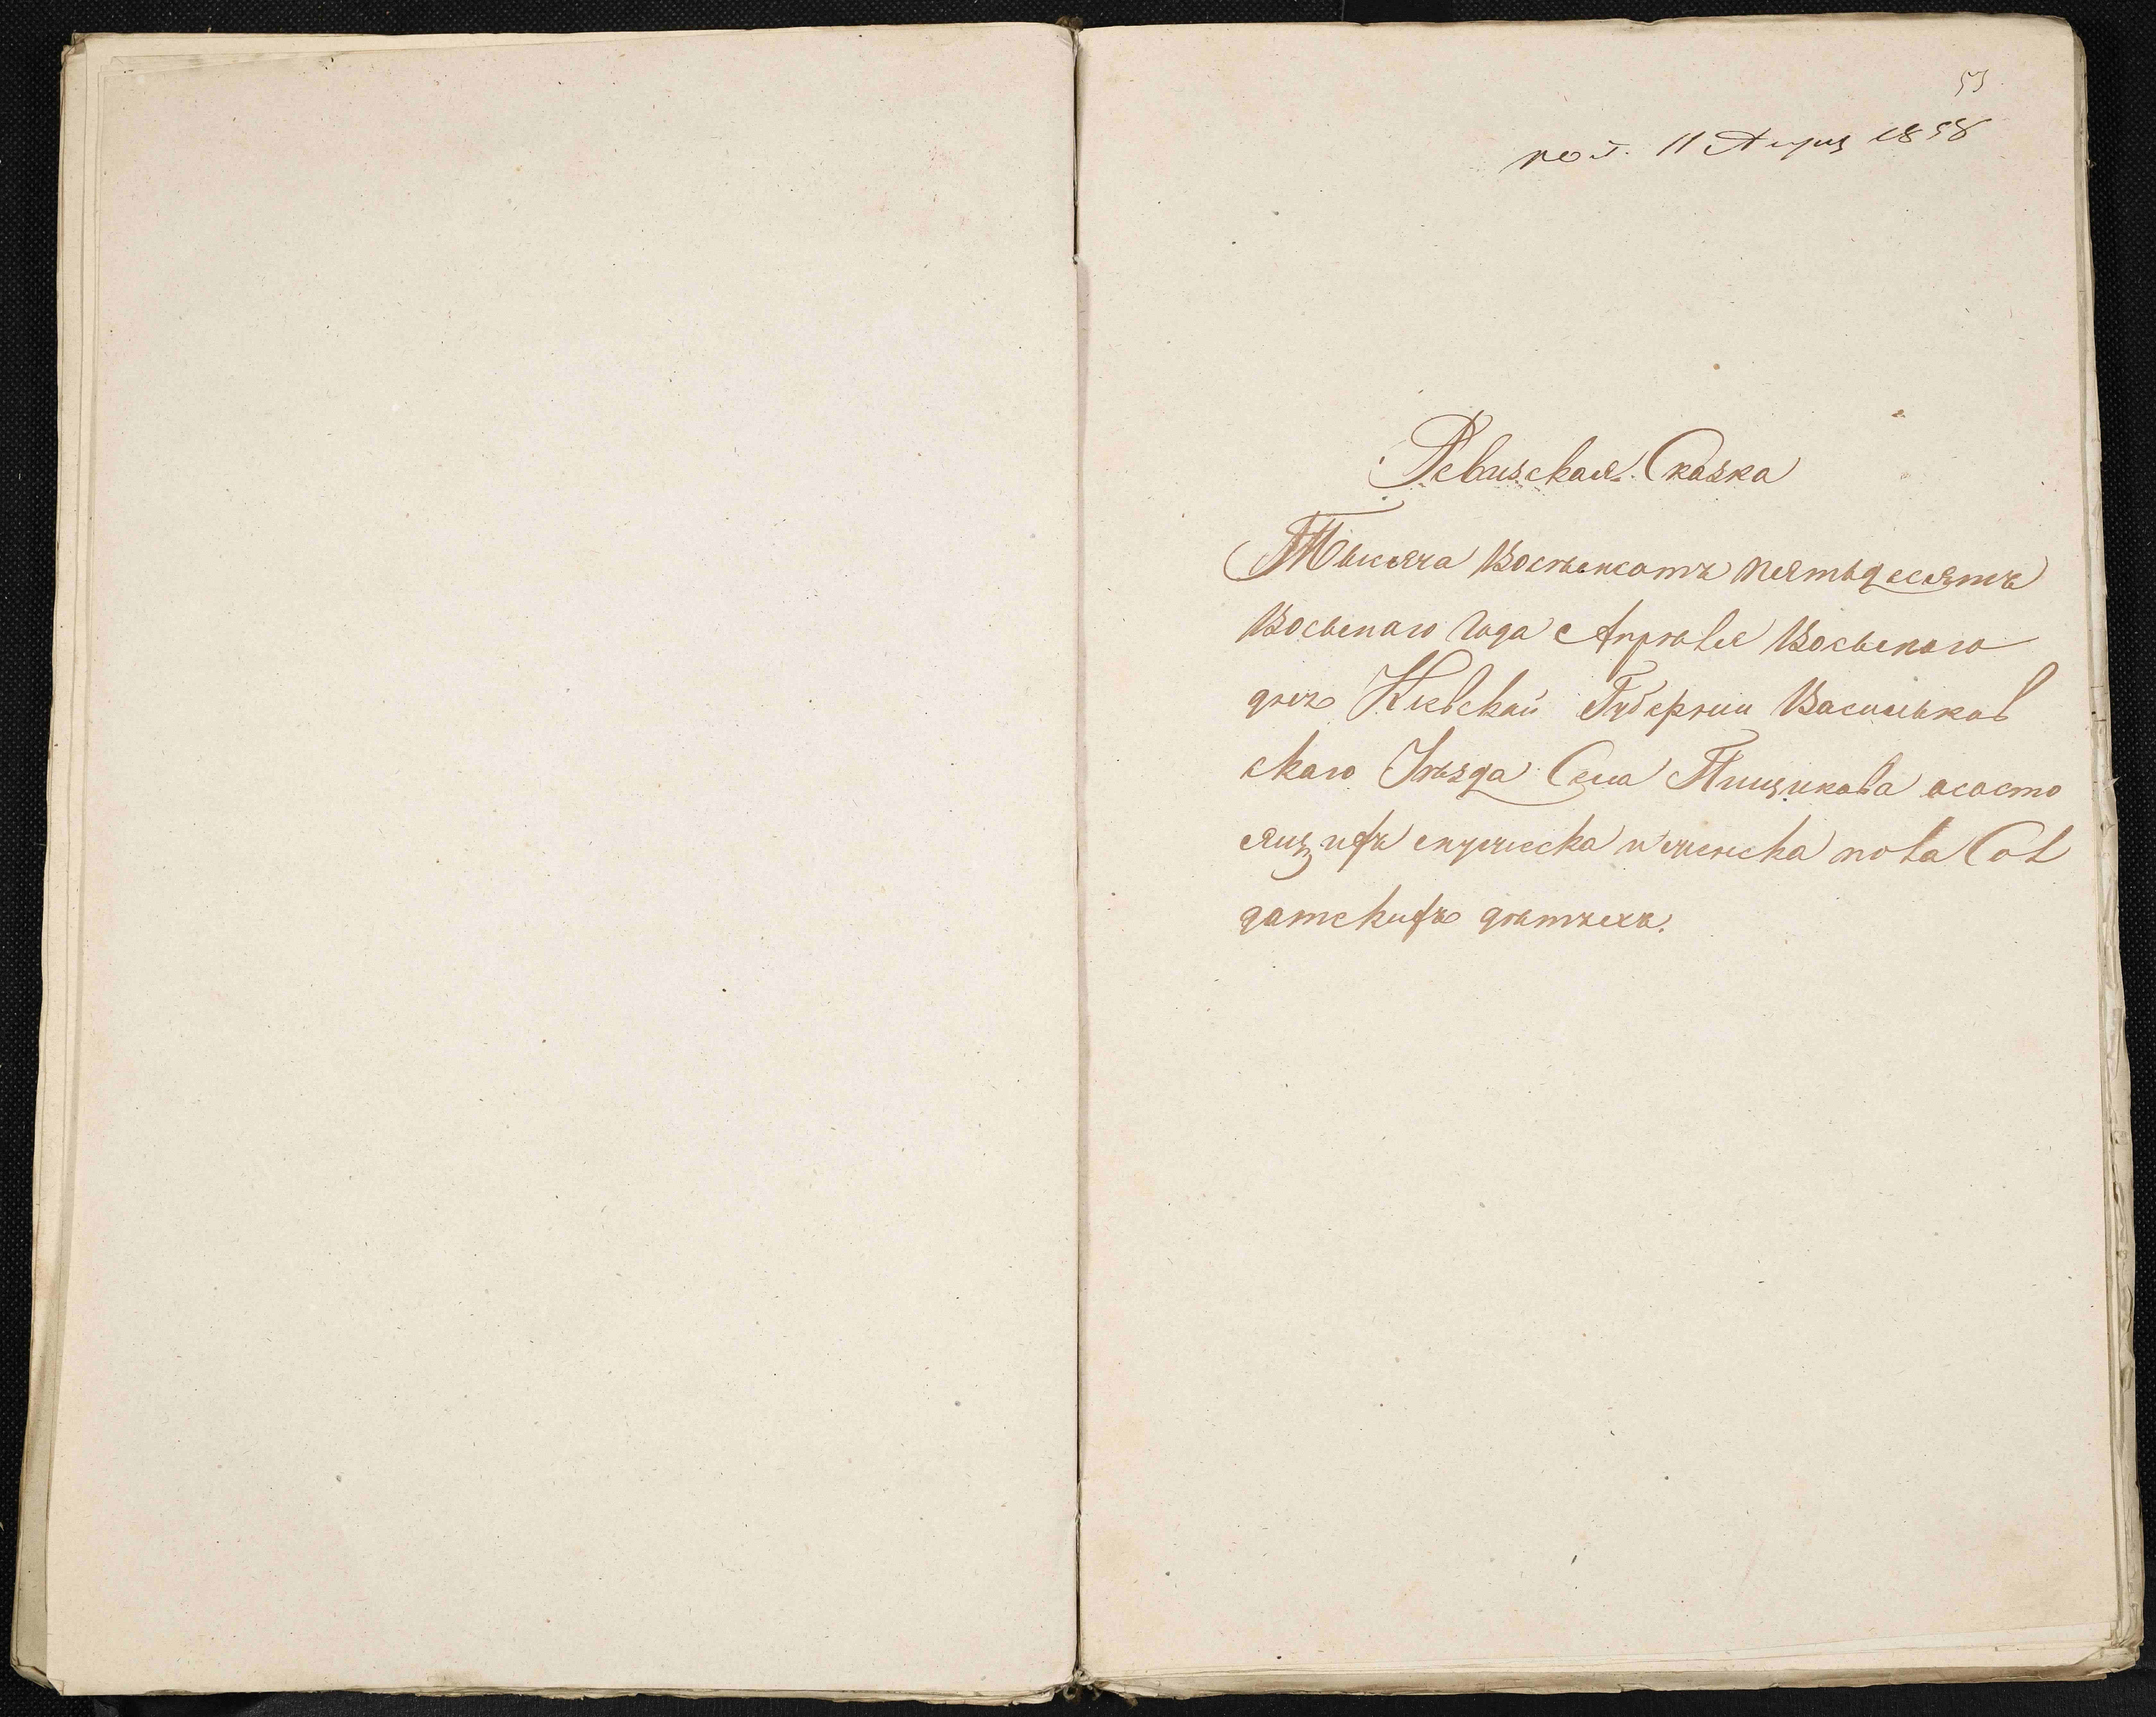 53
пол. 11 Апрѣ 1858
Ревизская Сказка
Тысяча Восемсотъ пятьдесятъ
Восьмаго Года Апрѣля Восьмаго
дня Кіевской Губерніи Васильков
скаго Уѣзда Села Пищикова осостo
ящихъ мужеска и женска пола Сол
датскихъ дѣтяхъ.